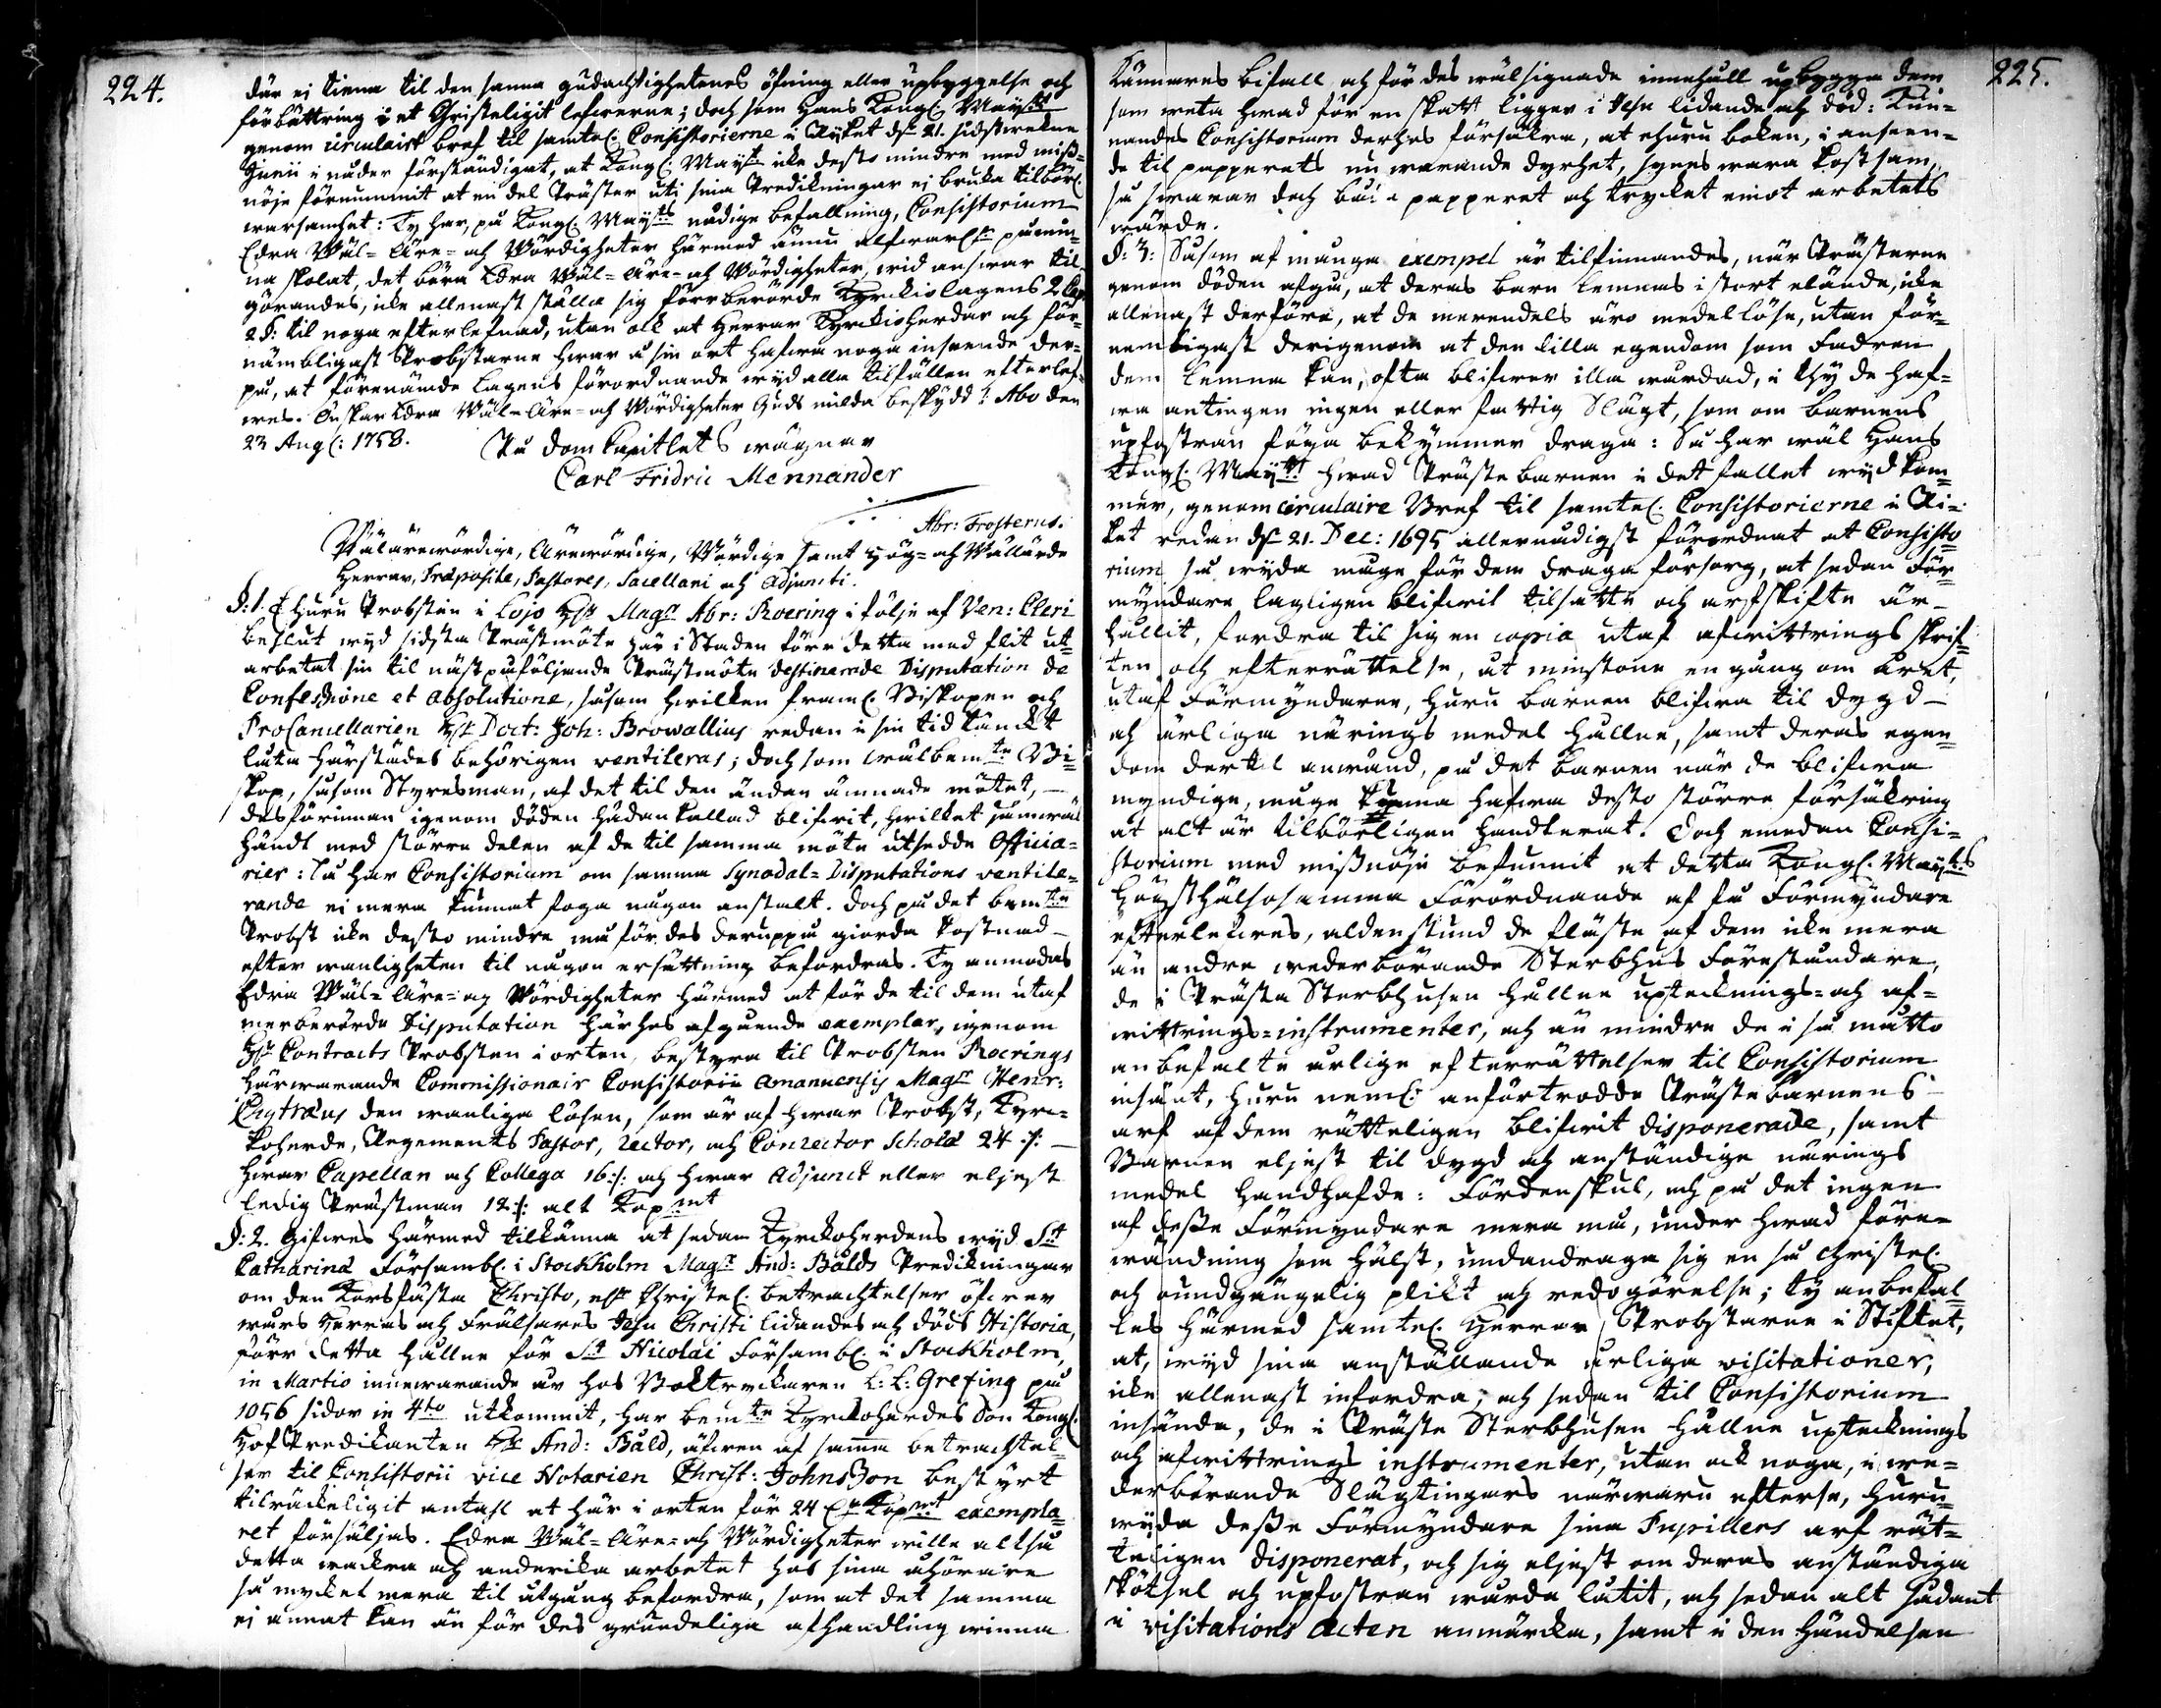 224.
där ej tiena til den sanna gudachtighetenes öfning eller upbyggelse och
förbättring i et Christeligit lefwerne; doch som Hans Kongl. Maytt
genom circulairt bref til samtel. Consistorierne i Ryket dn 21. sidstwekne
Junii i nåder förständigat, at Kongl. Mayt icke desto mindre med miß-
nöje förnummit at en del Präster uti sina Predikningar ej bruka tilbörl.
warsamhet: Ty har, på Kongl. Mayts nådige befallning, Consistorium
Edra Wäl- Äre- och Wördigheter härmed ännu alfwarl. påmin-
na skolat, det böra Edra Wäl- Äre- och Wördigheter, wid answar til-
görandes, icke allenast ställa sig förrberörde Kyrckiolagens 2 Cap.
2 §: til noga efterlefnad, utan ock at Herrar Kyrckioherdar och för-
nämbligast Probstarne hwar å sin ort hafwa noga inseende der-
på, at förenämde Lagens förordnande wyd alla tilfällen efterlef-
wes. Önskar Edra Wäl- Äre- och Wördigheter Guds milda beskydd! Abo den
23 Augl: 1758. På DomKapitlets wägnar
Carl Fridric Mennander
Abr: Frosterus.
Wälärewördige, Ärewördige, Wördige samt Hög- och Wällärde
Herrar, Præposite, Pastores, Sacellani och Adjuncti.
§: 1. Ehuru Probsten i Lojo Hr Magr Abr: Roering i följe af Ven: Cleri
beslut wyd sidsta Prästmöte här i Staden före detta med flit ut-
arbetat sin til näst påföljande Prästmöte destinerade Disputation de
Confessione et absolutione, såsom hwilken framl. Biskopen och
ProCancellarien Hr Doct: Joh: Browallius redan i sin tid tänckt
låta härstädes behörigen ventileras; doch som wälbemte Bi-
skop, såsom Styresman, af det til den ändan ämnade mötet,
desförinnan igenom döden hädankallad blifwit, hwilket jämwäl
händt med större delen af de til samma möte utsedde Officia-
rier: Så har Consistorium om samma Synodal-Disputations ventile-
rande ei mera kunnat foga någon anstalt. Doch på det bemte
Probst icke desto mindre må för des deruppå giorda kostnad
efter wanligheten til någon ersättning befordras. Ty anmodas
Edra Wäl- Äre- och Wördigheter härmed at för de til dem utaf
merberörde Disputation härhos afgående exemplar, igenom
Hr Contracts Probsten i orten, bestyra til Probsten Roerings
härwarande Commissionair Consistorii Amanuensis Magr Henr:
Chytræus den wanliga lösen, som är af hwar Probst, Kyrc-
koherde, Regements Pastor, Rector, och Conrector Scholæ 24 :/:
hwar Capellan och Collega 16 :/: och hwar Adjunct eller eljest
ledig Prästman 12 :/: alt Kopmt
§: 2. Gifwes härmed tilkänna at sedan Kyrckoherdens wyd St
Catharinæ Försambl. i Stockholm Magr And: Bälds Predikningar
om den Korsfästa Christo, eller Christel. betrachtelser öfwer
wårs Herras och Frälsares Jesu Christi lidandes och döds Historia,
förr detta hållne för St Nicolai Försambl. i Stockholm,
in Martio innewarande år hos Boktryckaren L: L: Grefing på
1056 sidor in 4to utkommit, har bemte Kyrckoherdes Son Kongl.
Hof Predikanten Hr And: Bäld, äfwen af samma betrachtel-
ser til Consistorii vice Notarien Christ: Johnsson bestyrt
tilräckeligit antahl at här i orten för 24 Kopmt exempla-
ret försäljas. Edra Wäl- Äre- och Wördigheter wille altså
detta wackra och anderika arbetet hos sina åhörare
så mycket mera til utgång befordra, som at det samma
ej annat kan än för des grundeliga afhandling winna
225.
Kännares bifall och för des wälsignade innehåll upbygga dem
som weta hwad för en skatt ligger i Jesu lidande och död: Kun-
nandes Consistorium derhos försäkra, at ehuru boken, i anseen-
de til papperets nu warande dyrhet, synes wara kostsam,
så swarar doch både papperet och trycket emot arbetets
wärde.
§: 3: Såsom af många exempel är tilfinnandes, når Prästerne
genom döden afgå, at deras barn lemnas i stort elände, icke
allenast derföre, at de merendels äro medellöse, utan för-
nembligast derigenom at den lilla egendom som Fadren
dem lemna kan, ofta blifwer illa wårdad, i thy de haf-
wa antingen ingen eller fattig Slägt, som om barnens
upfostran föga bekymmer draga: Så har wäl Hans
Kongl. Maytt hwad Prästebarnen i det fallet wyd kom-
mer, genom circulaire Bref til samtel. Consistorierne i Ri-
ket redan dn 21. Dec: 1695 allernådigst förordnat at Consisto-
rium så wyda måge för dem draga försorg, at sedan För-
myndare lagligen blifwit tilsatte och arfskifte är
hållit, fordra til sig en copia utaf afwittrings skrif-
ten och efterrättelse, åt minstone en gång om året,
utaf Förmyndaren, huru barnen blifwa til dygd
och ärliga närings medel hållne, samt deras egen-
dom dertil anwänd, på det barnen när de blifwa
myndige, måge kunna hafwa desto större försäkring
at alt är tilbörligen handterat. Och emedan Consi-
storium med mißnöje befunnit at detta Kongl. Mayts
högsthälsosamma Förordnande af få Förmyndare
efterlefwes, aldenstund de fläste af dem icke mera
än andre wederbörande Sterbhus Föreståndare,
de i Präste Sterbhusen hållne uptecknings- och af-
wittrings-instrumenter, och än mindre de i så måtto
anbefalte årlige efterrättelser til Consistorium
insänt, huru neml. anförtrodde Prästebarnens
arf af dem rätteligen blifwit disponerade, samt
Barnen eljest til dygd och anständige närings
medel handhafde: Fördenskul, och på det ingen
af deße Förmyndare mera må, under hwad före-
wändning som hälst, undandraga sig en så christel.
och oundgängelig plikt och redogörelse; ty anbefal-
les härmed samtel. Herrar Probstarne i Stiftet,
at, wyd sina anställande årliga visitationer,
icke allenast infordra, och sedan til Consistorium
insända, de i Präste Sterbhusen hållne uptecknings
och afwittrings instrumenter, utan ock noga, i we-
derbörande Slägtingars närwaru efterse, huru-
wyda deße Förmyndare sina Pupillers arf rät-
teligen disponerat, och sig eljest om deras anständiga
skötsel och upfostran wårda låtit, och sedan alt sådant
i visitations Acten anmärcka, samt i den händelsen